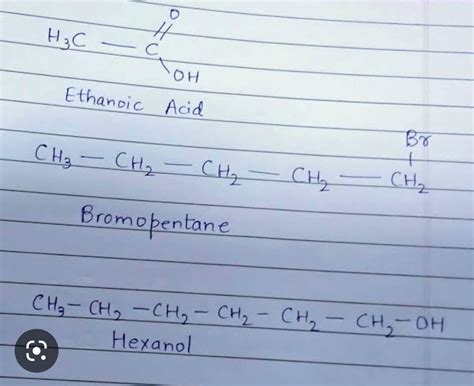 O
H₃C — C
OH
Ethanoic Acid
Br
CH₃ — CH₂ — CH₂ — CH₂ — CH₂
Bromopentane
CH₃ — CH₂ — CH₂ — CH₂ — CH₂ — CH₂ — OH
Hexanol